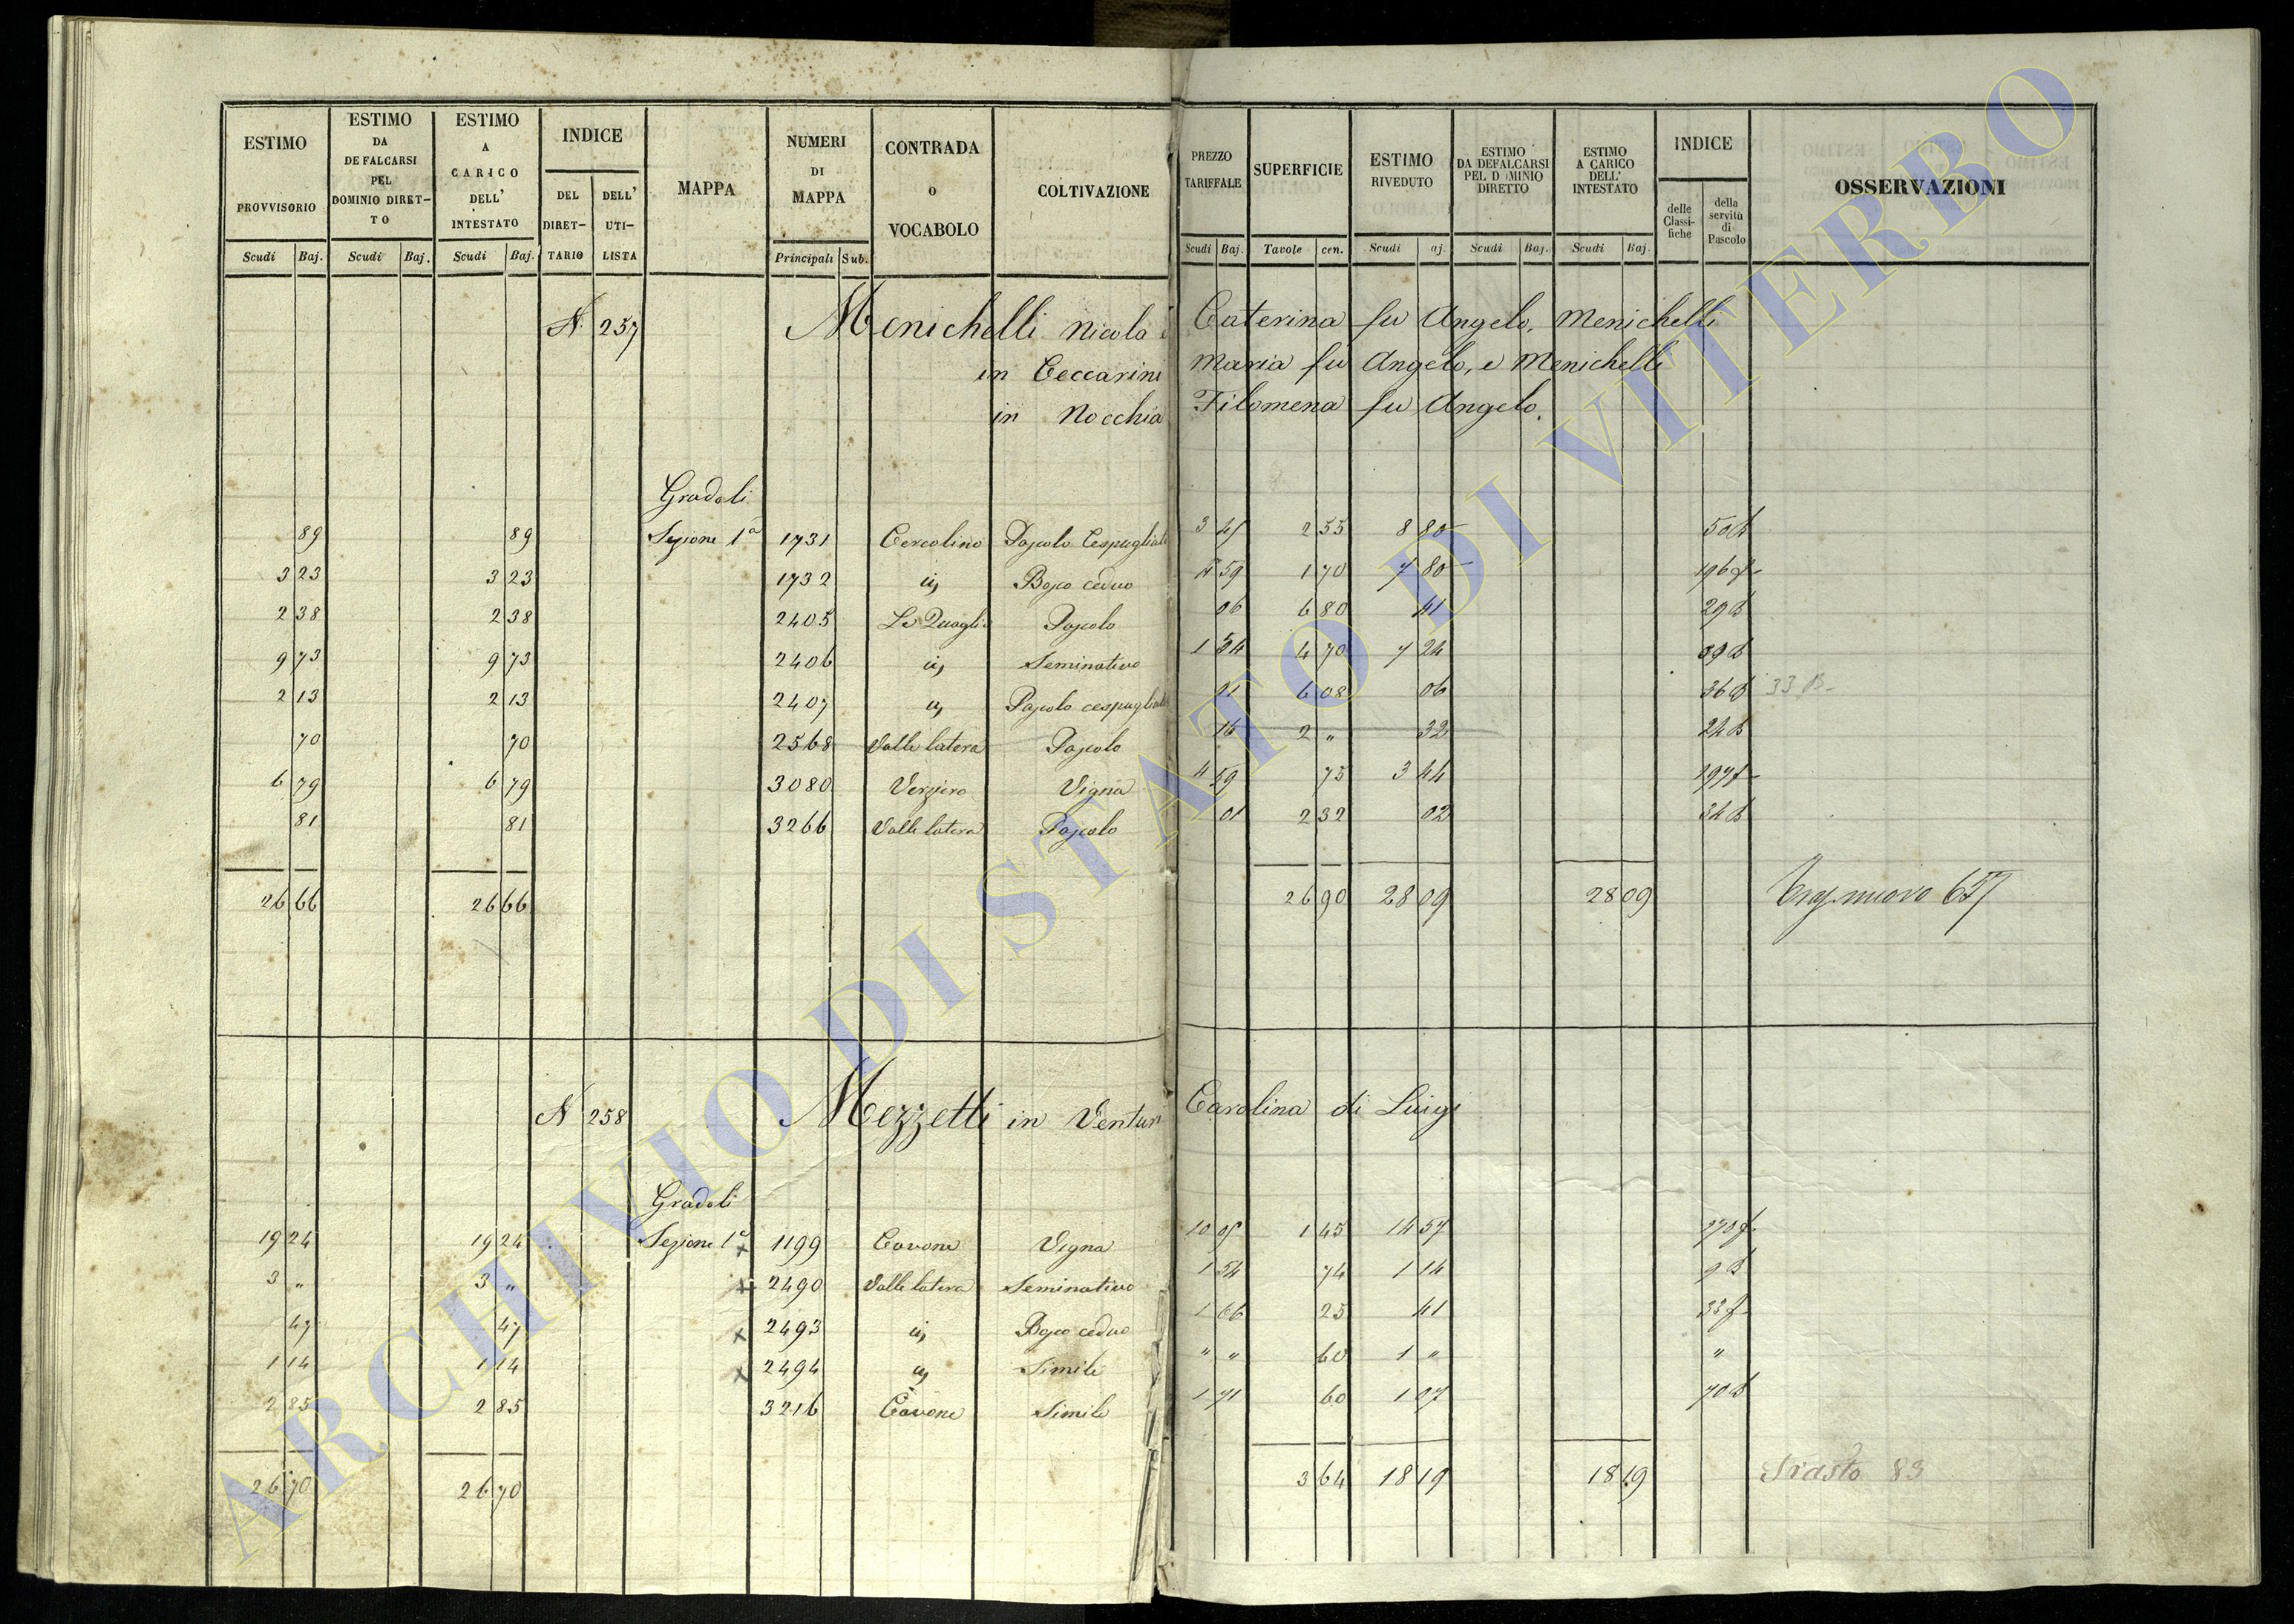 ESTIMO PROVVISORIO Scudi Baj. | ESTIMO DA DEFALCARSI PEL DOMINIO DIRET-TO Scudi Baj. | ESTIMO A CARICO DELL' INTESTATO Scudi Baj. | INDICE DEL DIRET-TARIO DELL' UTI-LISTA | MAPPA | NUMERI DI MAPPA Principali Sub. | CONTRADA o VOCABOLO | COLTIVAZIONE | PREZZO TARIFFALE Scudi Baj. | SUPERFICIE Tavole cen. | ESTIMO RIVEDUTO Scudi aj. | ESTIMO DA DEFALCARSI PEL D MINIO DIRETTO Scudi Baj. | ESTIMO A CARICO DELL' INTESTATO Scudi Baj. | INDICE delle Classi-fiche della servitù di Pascolo | OSSERVAZIONI
N. 257 Menichelli Nicola e Caterina fu Angelo, Menichelli
in Ceccarini Maria fu Angelo, e Menichelli
in Nocchia Filomena fu Angelo.
Gradoli
89 89 Sezione 1a 1731 Cercolino Pascolo Cespugliato 3 45 2 55 8 80 50
3 23 3 23 1732 id. Bosco ceduo 4 59 1 70 7 80 196
2 38 2 38 2405 Le Quagli Pascolo 06 6 80 41 29
9 73 9 73 2406 id. Seminativo 1 54 4 70 7 24 89
2 13 2 13 2407 id. Pascolo cespugliato 01 6 08 06 36 33 B
70 70 2568 Valle latera Pascolo 16 2 " 32 24
6 79 6 79 3080 Verziero Vigna 4 59 75 3 44 297
81 81 3266 Valle latera Pascolo 01 2 32 02 34
26 66 26 66 26 90 28 09 28 09 nuovo 657
N 258 Mezzetti in Venturi Carolina di Luigi
Gradoli
19 24 19 24 Sezione 1a x 1199 Cavone Vigna 10 05 1 45 14 57 270
3 " 3 " x 2490 Valle latera Seminativo 1 54 74 1 14 9
47 47 x 2493 id. Bosco ceduo 1 66 25 41 33
1 14 1 14 x 2494 id. Simile " " 60 1 " "
2 85 2 85 3216 Cavone Simile 1 71 60 1 07 70
26 70 26 70 3 64 18 19 18 19 83
ARCHIVIO DI STATO DI VITERBO